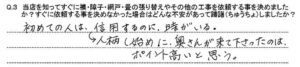 Q.3 当店を知ってすぐに襖・障子・網戸・畳の張り替えやその他の工事を依頼する事を決めました
か？すぐに依頼する事を決めなかった場合はどんな不安があって躊躇（ちゅうちょ）しましたか？
初めての人は、信用するのに、時がいる。
人柄し始めに、奥さんが来て下さったのは、
ポイント高いと思う。